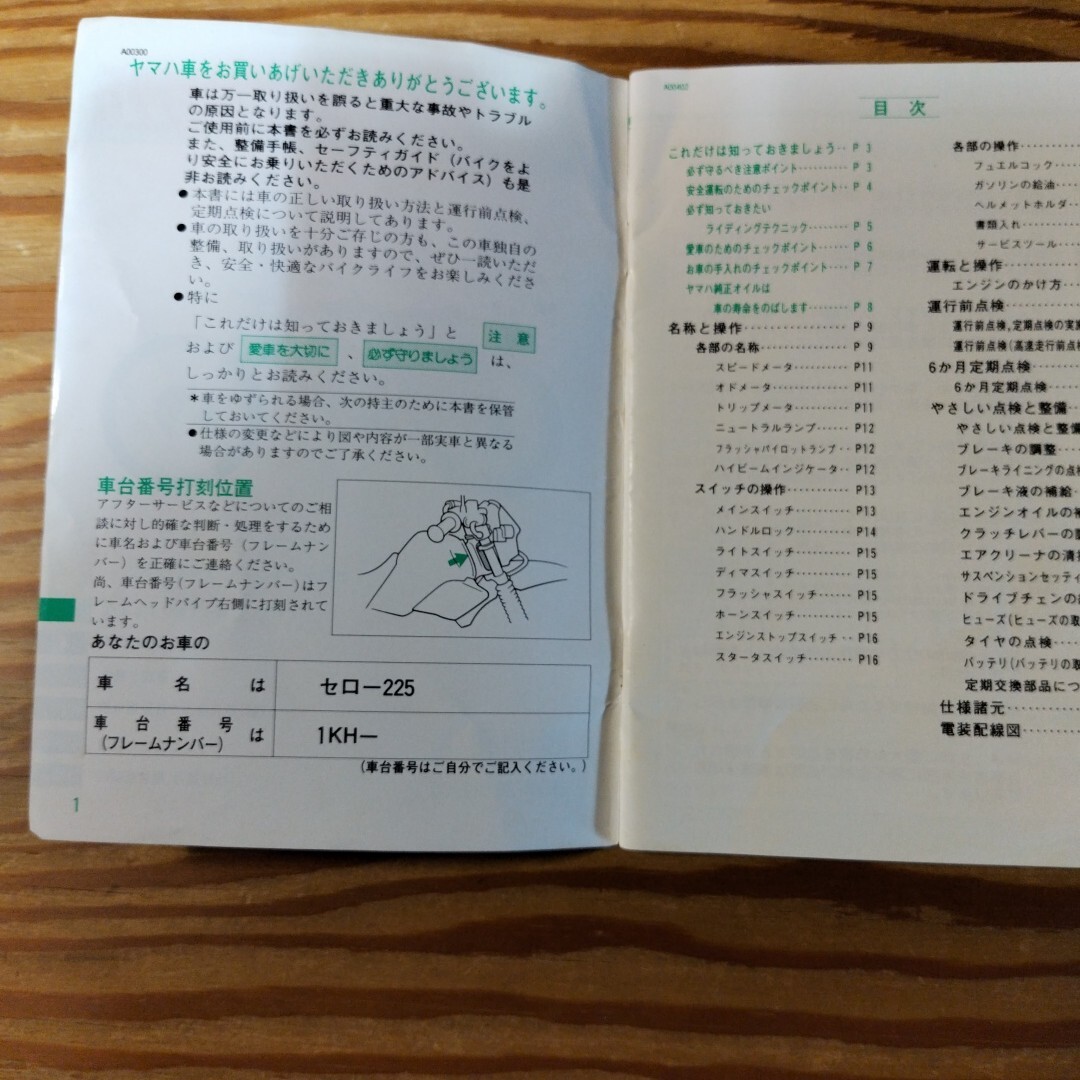 A00300
ヤマハ車をお買いあげいただきありがとうございます。
車は万一取り扱いを誤ると重大な事故やトラブル
の原因となります。
ご使用前に本書を必ずお読みください。
また、整備手帳、セーフティガイド（バイクをよ
り安全にお乗りいただくためのアドバイス）も是
非お読みください。
●本書には車の正しい取り扱い方法と運行前点検、
定期点検について説明してあります。
●車の取り扱いを十分ご存じの方も、この車独自の
整備、取り扱いがありますので、ぜひ一読いただ
き、安全・快適なバイクライフをお楽しみくださ
い。
●特に
「これだけは知っておきましょう」と 注意
および 愛車を大切に 、 必ず守りましょう は、
しっかりとお読みください。
＊車をゆずられる場合、次の持主のために本書を保管
しておいてください。
●仕様の変更などにより図や内容が一部実車と異なる
場合がありますのでご了承ください。
車台番号打刻位置
アフターサービスなどについてのご相
談に対し的確な判断・処理をするため
に車名および車台番号（フレームナン
バー）を正確にご連絡ください。
尚、車台番号(フレームナンバー)はフ
レームヘッドパイプ右側に打刻されて
います。
あなたのお車の
車名は セロー225
車台番号(フレームナンバー)は 1KH—
(車台番号はご自分でご記入ください。)
1
A00402
目次
これだけは知っておきましょう‥P 3
必ず守るべき注意ポイント………P 3
安全運転のためのチェックポイント‥P 4
必ず知っておきたい
ライディングテクニック………P 5
愛車のためのチェックポイント……P 6
お車の手入れのチェックポイント…P 7
ヤマハ純正オイルは
車の寿命をのばします…………P 8
名称と操作………………P 9
各部の名称………………P 9
スピードメータ…………P11
オドメータ………………P11
トリップメータ…………P11
ニュートラルランプ……P12
フラッシャパイロットランプ‥P12
ハイビームインジケータ‥P12
スイッチの操作…………P13
メインスイッチ…………P13
ハンドルロック…………P14
ライトスイッチ…………P15
ディマスイッチ…………P15
フラッシャスイッチ……P15
ホーンスイッチ…………P15
エンジンストップスイッチ‥P16
スタータスイッチ………P16
各部の操作………
フュエルコック…
ガソリンの給油…
ヘルメットホルダ…
書類入れ…
サービスツール…
運転と操作………
エンジンのかけ方…
運行前点検………
運行前点検,定期点検の実施
運行前点検(高速走行前点検
6か月定期点検……
6か月定期点検……
やさしい点検と整備…
やさしい点検と整備
ブレーキの調整……
ブレーキライニングの点検
ブレーキ液の補給…
エンジンオイルの補
クラッチレバーの調
エアクリーナの清掃
サスペンションセッティ
ドライブチェンの
ヒューズ(ヒューズの取
タイヤの点検……
バッテリ(バッテリの取
定期交換部品につ
仕様諸元…………
電装配線図………